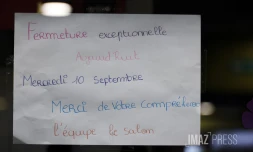 Fermeture exceptionnelle
Aujourd'hui
Mercredi 10 Septembre
Merci de Votre Compréhension
l'équipe le salon
IMAZ PRESS